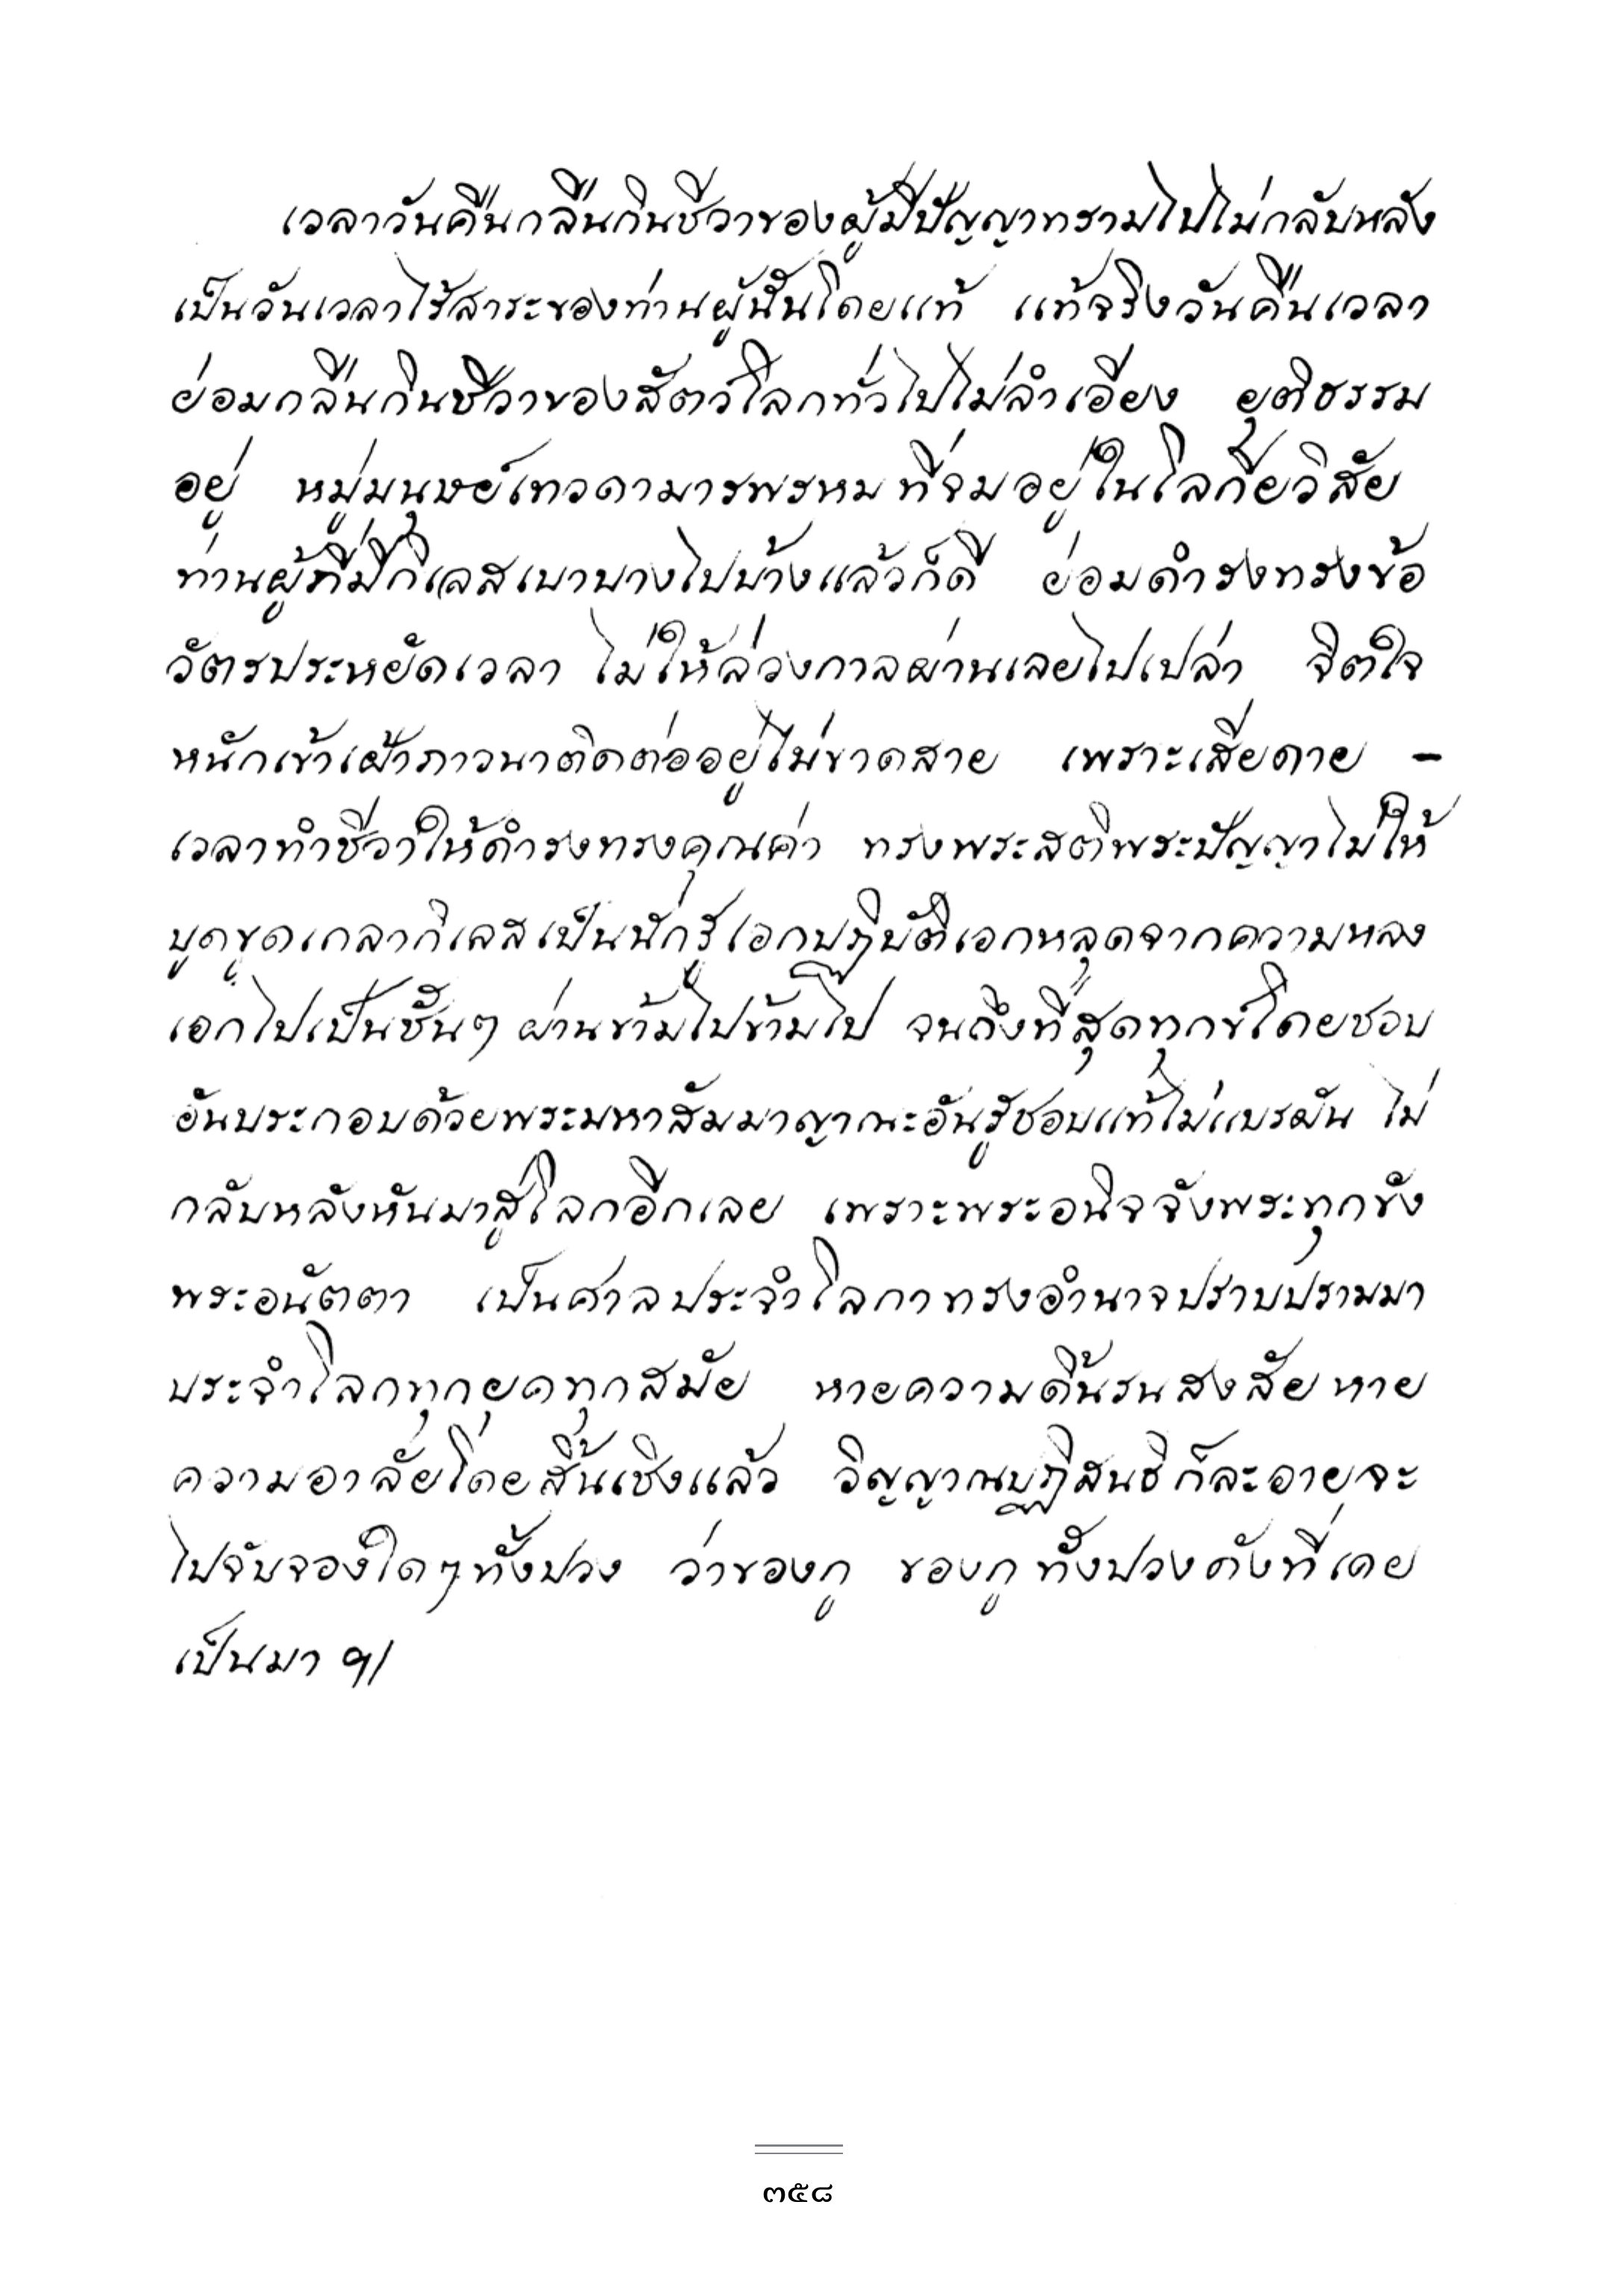 เวลาวันคืนกลืนกินชีวาของผู้มีปัญญาทรามไปไม่กลับหลัง
เป็นวันเวลาไร้สาระของท่านผู้นั้นโดยแท้ แท้จริงวันคืนเวลา
ย่อมกลืนกินชีวาของสัตว์โลกทั่วไปไม่ลำเอียง ยุติธรรม
อยู่ หมู่มนุษย์เทวดามารพรหมที่จมอยู่ในโลกีย์วิสัย
ท่านผู้ที่มีกิเลสเบาบางไปบ้างแล้วก็ดี ย่อมดำรงทรงข้อ
วัตรประหยัดเวลา ไม่ให้ล่วงกาลผ่านเลยไปเปล่า จิตใจ
หนักเข้าเฝ้าภาวนาติดต่ออยู่ไม่ขาดสาย เพราะเสียดาย -
เวลาทำชีวาให้ดำรงทรงคุณค่า ทรงพระสติพระปัญญาไม่ให้
บูดขูดเกลากิเลสเป็นนักรู้เอกปฏิบัติเอกหลุดจากความหลง
เอกไปเป็นชั้นๆ ผ่านข้ามไปข้ามไป จนถึงที่สุดทุกข์โดยชอบ
อันประกอบด้วยพระมหาสัมมาญาณะอันรู้ชอบแท้ไม่แปรผัน ไม่
กลับหลังหันมาสู่โลกอีกเลย เพราะพระอนิจจังพระทุกขัง
พระอนัตตา เป็นศาลประจำโลกาทรงอำนาจปราบปรามมา
ประจำโลกทุกยุคทุกสมัย หายความดิ้นรนสงสัยหาย
ความอาลัยโดยสิ้นเชิงแล้ว วิญญาณปฏิสนธิก็ละอายจะ
ไปจับจองใดๆทั้งปวง ว่าของกู ของกูทั้งปวงดังที่เคย
เป็นมา ฯ/
๓๕๘